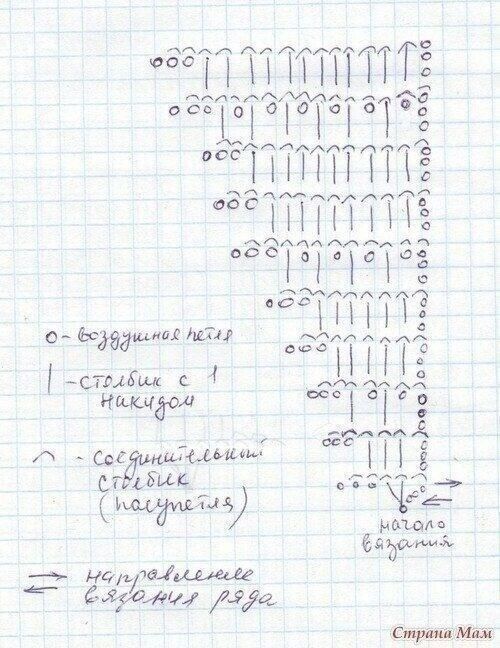 о - воздушная петля
| - столбик с 1
накидом
⌒ - соединительный
столбик
(полупетля)
начало
вязания
→ направление
← вязания ряда
Страна Мам